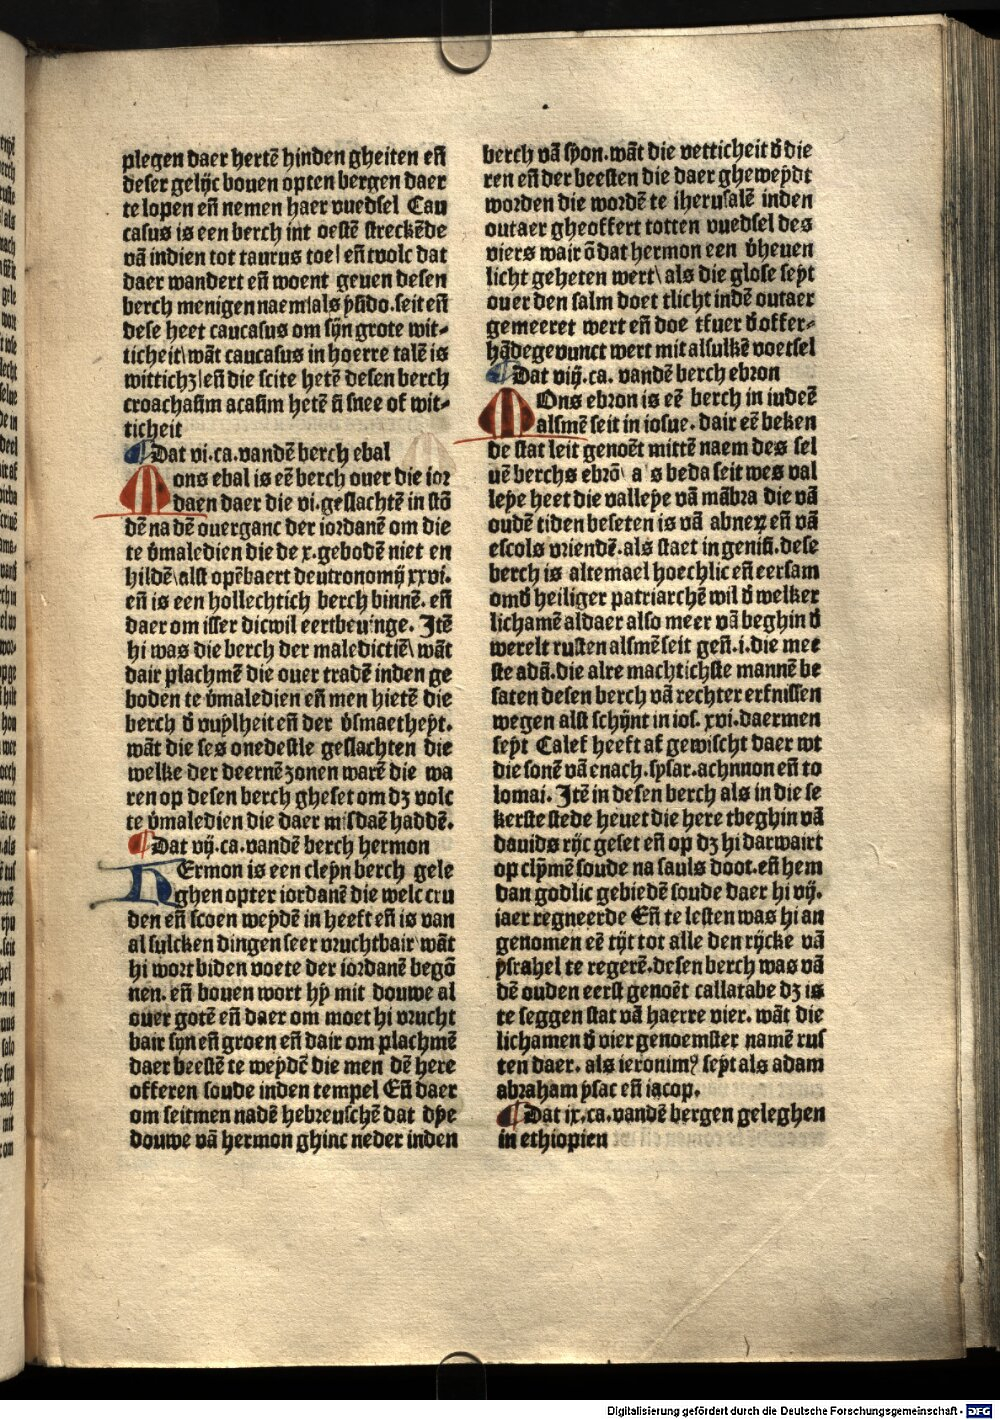 plegen daer hertē hinden gheiten eñ
deser gelijc bouen opten bergen daer
te lopen eñ nemen haer vuedsel Cau
casus is een berch int oestē streckēde
vā indien tot taurus toe/ eñ twolc dat
daer wandert eñ woent geuen desen
berch menigen naem/als ysido.seit eñ
dese heet caucasus om sijn grote wit-
ticheit\ wāt caucasus in hoerre talē is
wittichʒ/eñ die scite hetē desen berch
croachasim acasim hetē ñ snee of wit-
ticheit
¶ Dat vi.ca.vandē berch ebal
Mons ebal is eē berch ouer die ior
daen daer die vi.geslachtē in stō
dē na dē ouerganc der iordanē om die
te v̄maledien die de x.gebodē niet en
hildē\alst opēbaert deutronomij xxvi.
eñ is een hollechtich berch binnē. eñ
daer om isser dicwil eertbeuinge. Itē
hi was die berch der maledictiē\ wāt
dair plachmē die ouer tradē inden ge
boden te v̄maledien eñ men hietē die
berch v̄ vuylheit eñ der v̄smaetheyt.
wāt die ses onedestle geslachten die
welke der deernē zonen warē die wa
ren op desen berch gheset om dʒ volc
te v̄maledien die daer misdaē haddē.
¶ Dat vij.ca.vandē berch hermon
HErmon is een cleyn berch gele
ghen opter iordanē die welc cru
den eñ scoen weydē in heeft eñ is van
al sulcken dingen seer vruchtbair wāt
hi wort biden voete der iordanē begō
nen. eñ bouen wort hy mit douwe al
ouer gotē eñ daer om moet hi vrucht
bair syn eñ groen eñ dair om plachmē
daer beestē te weydē die men dē here
offeren soude inden tempel Eñ daer
om seitmen nadē hebreuschē dat dye
douwe vā hermon ghinc neder inden
berch vā syon.wāt die vetticheit v̄ die
ren eñ der beesten die daer gheweydt
worden die wordē te iherusalē inden
outaer gheoffert totten vuedsel des
viers wair ō dat hermon een v̄heuen
licht geheten wert\ als die glose seyt
ouer den salm doet tlicht indē outaer
gemeeret wert eñ doe tfuer v̄ offer-
hādegevunct wert mit alsulkē voetsel
¶ Dat viij.ca. vandē berch ebron
MOns ebron is eē berch in iudeē
alsmē seit in iosue. dair eē beken
de stat leit genoēt mittē naem des sel
uē berchs ebrō\ a s beda seit wes val
leye heet die valleye vā mābra die vā
oudē tiden beseten is vā abner eñ vā
escols vriendē.als staet in genisi.dese
berch is altemael hoechlic eñ eersam
omv̄ heiliger patriarchē wil v̄ welker
lichamē aldaer also meer vā beghin v̄
werelt rusten alsmē seit gesi.i.die mee
ste adā.die alre machtichste mannē be
saten desen berch vā rechter erfnissen
wegen alst schijnt in ios. xvi.daermen
seyt Calef heeft af gewischt daer wt
die sonē vā enach.sysar.achnnon eñ to
lomai. Itē in desen berch als in die se
kerste stede heuet die here tbeghin vā
dauids rijc geset eñ op dʒ hi darwairt
op clymē soude na sauls doot.eñ hem
dan godlic gebiedē soude daer hi vij.
iaer regneerde Eñ te lesten was hi an
genomen eē tijt tot alle den rijcke vā
ysrahel te regerē.desen berch was vā
dē ouden eerst genoēt callatabe dʒ is
te seggen stat vā haerre vier. wāt die
lichamen v̄ vier genoemster namē rus
ten daer. als ieronimꝰ seyt als adam
abraham ysac eñ iacop.
¶ Dat ix.ca.vandē bergen geleghen
in ethiopien
Digitalisierung gefördert durch die Deutsche Forschungsgemeinschaft - DFG